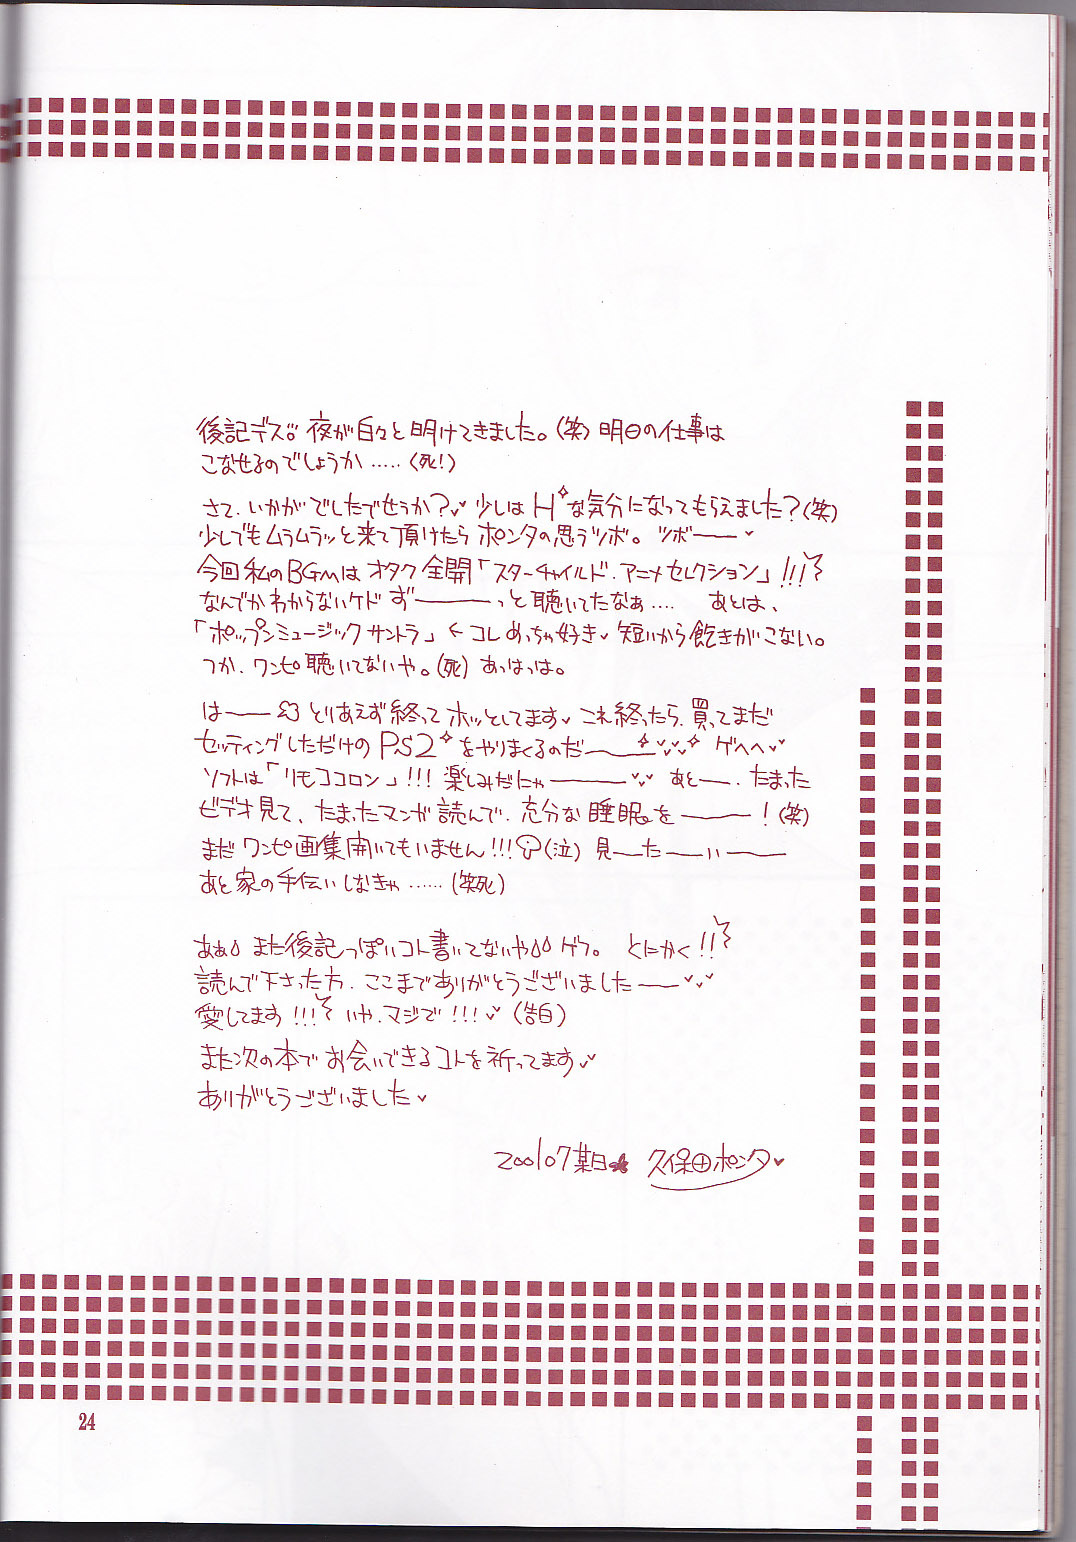 後記デス。夜が白々と明けてきました。(笑) 明日の仕事は
こなせるのでしょうか‥‥‥(死!)
さて、いかがでしたでせうか?♥ 少しはHな気分になってもらえました?(笑)
少しでもムラムラッと来て頂けたらポンタの思うツボ。ツボーー♥
今回私のBGMはオタク全開「スターチャイルド・アニメセレクション」!!!
なんでかわからないケドずーーーっと聴いてたなぁ‥‥ あとは、
「ポップンミュージックサントラ」←コレめっちゃ好き♥ 短いから飽きがこない。
つか、ワンピ聴いてないや。(死) あっはっは。
はーー とりあえず終ってホッとしてます♥ これ終ったら、買ってまだ
セッティングしただけのPS2をやりまくるのだーー♥♥♥ ゲヘヘ♥
ソフトは「リモココロン」!!! 楽しみだにゃーーー♥♥ あとー、たまった
ビデオ見て、たまったマンガ読んで、充分な睡眠をーーー!(笑)
まだワンピ画集開いてもいません!!!(泣) 見ーたーいーー
あと家の手伝いしなきゃ‥‥‥(笑死)
あぁ また後記っぽいコト書いてないや ゲフ。 とにかく!!
読んで下さった方、ここまでありがとうございましたーー♥♥
愛してます!!! いや、マジで!!!♥ (告白)
また次の本でお会いできるコトを祈ってます♥
ありがとうございました♥
2001 07 某日 久保田ポンタ♥
24